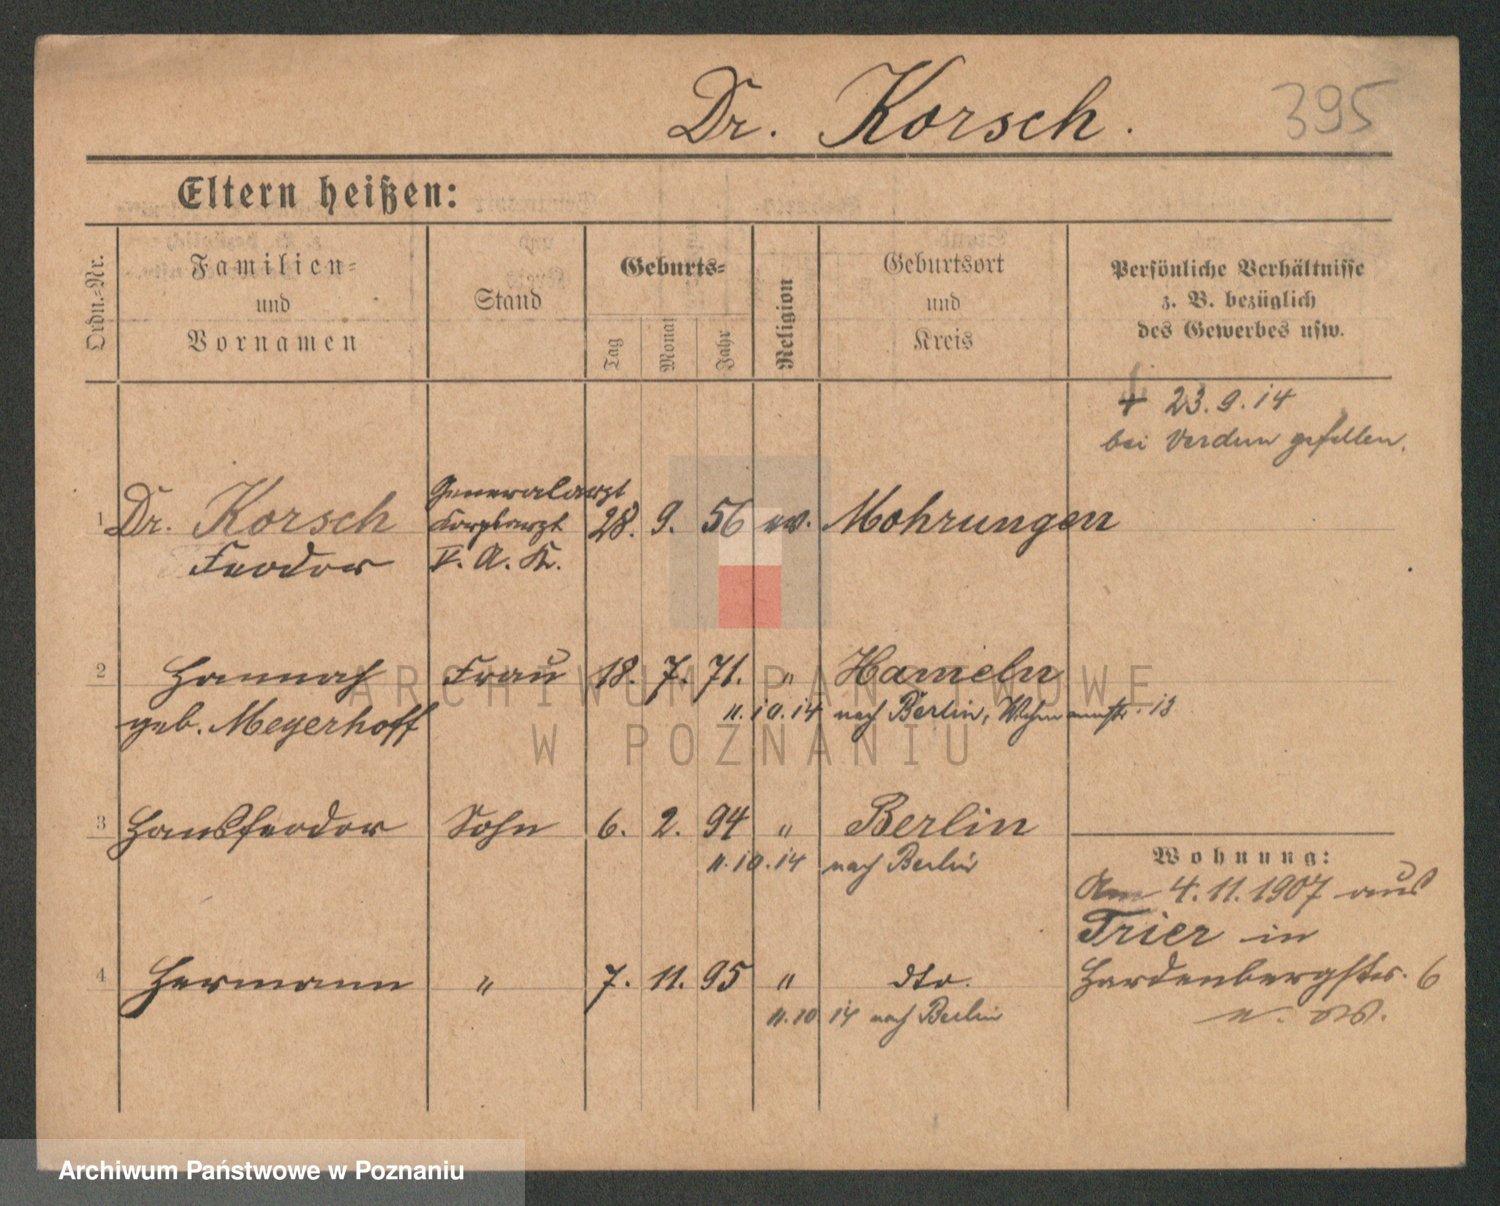 Dr. Korsch.
395
Eltern heißen:
Ordn.-Nr.
Familien-
und
Vornamen
Stand
Geburts-
Tag
Monat
Jahr
Religion
Geburtsort
und
Kreis
Persönliche Verhältnisse
z. B. bezüglich
des Gewerbes usw.
† 23.9.14
bei Verdun gefallen.
Generalarzt
1 Dr. Korsch Korpsarzt 28. 9. 56 ev. Mohrungen
Feodor V. A. K.
2 Hannah Frau 18. 7. 71. " Hameln
geb. Meyerhoff 11.10.14 nach Berlin, 13
3 Hansfeodor Sohn 6. 2. 94 " Berlin
11.10.14 nach Berlin
Wohnung:
Am 4.11.1907 aus
Trier in
4 Hermann " 7. 11. 95 " dto. Hardenbergstr. 6
11.10 14 nach Berlin
ARCHIWUM PAŃSTWOWE
W POZNANIU
Archiwum Państwowe w Poznaniu